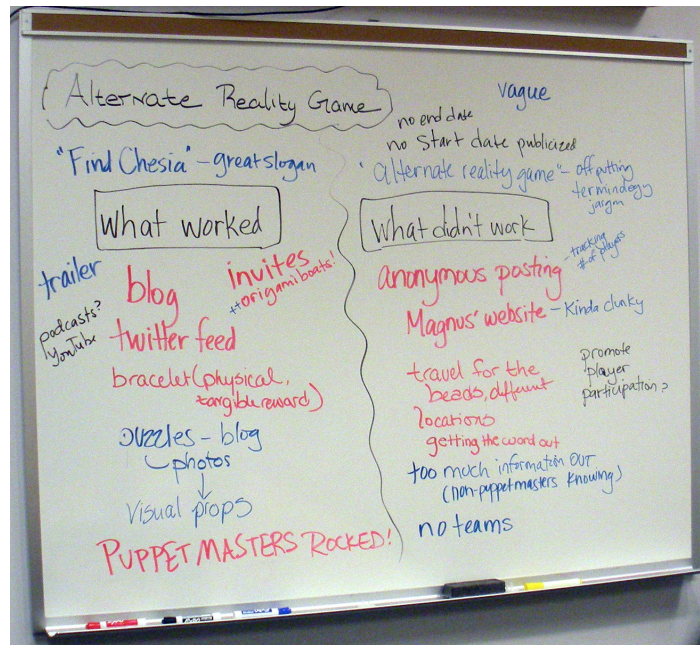 Alternate Reality Game
"Find Chesia" - great slogan
What worked
trailer
blog
invites
++origami boats!
podcasts?
YouTube
twitter feed
bracelet (physical,
tangible reward)
puzzles - blog
photos
visual props
PUPPET MASTERS ROCKED!
vague
no end date
no start date publicized
"alternate reality game" - off putting
terminology
jargon
What didn't work
- tracking
# of players
anonymous posting
Magnus' website - Kinda clunky
travel for the
beads, different
locations
getting the word out
promote
player
participation?
too much information OUT
(non-puppetmasters knowing)
no teams